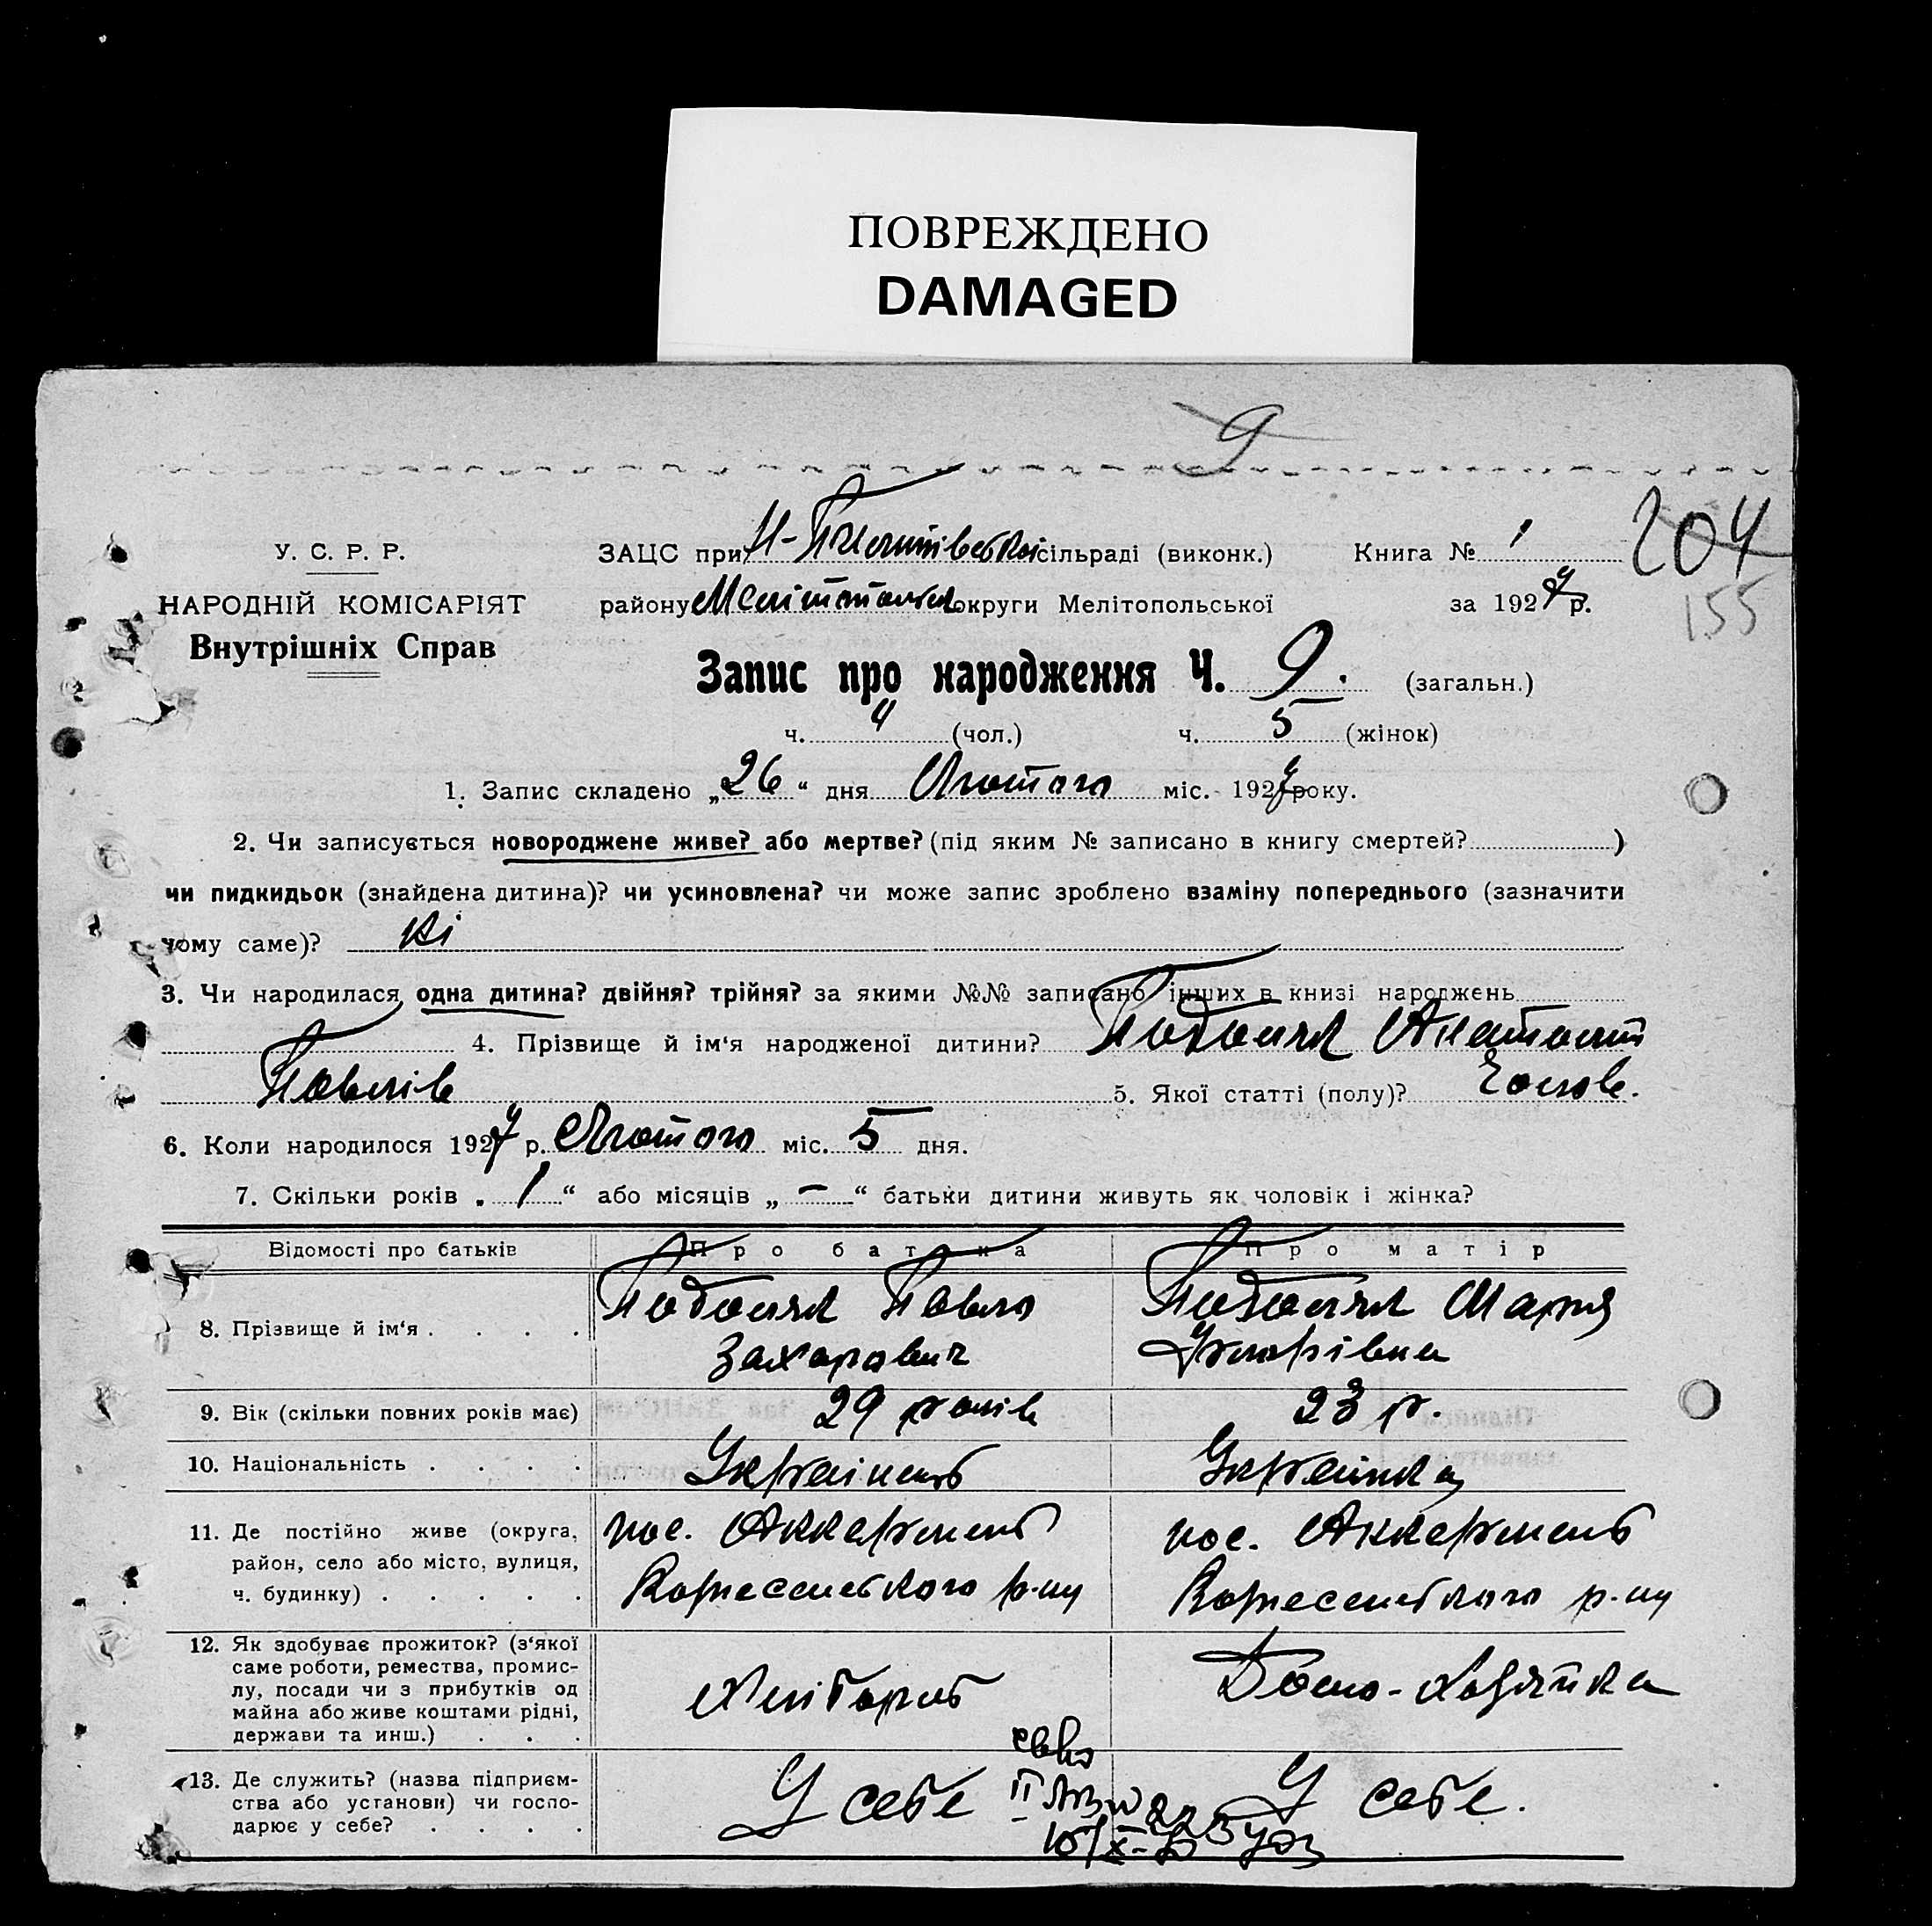 ПОВРЕЖДЕНО
DAMAGED
9
У. С. Р. Р.
НАРОДНІЙ КОМІСАРІЯТ
Внутрішніх Справ
ЗАЦС при Н- сільраді (виконк.) Книга № 1
204
району округи Мелітопольської за 1927 р.
155
Запис про народження Ч. 9. (загальн.)
ч. 4 (чол.) ч. 5 (жінок)
1. Запис складено „26“ дня Лютого міс. 1927 року.
2. Чи записується новороджене живе? або мертве? (під яким № записано в книгу смертей? )
чи пидкидьок (знайдена дитина)? чи усиновлена? чи може запис зроблено взаміну попереднього (зазначити
чому саме)? Ні
3. Чи народилася одна дитина? двійня? трійня? за якими №№ записано інших в книзі народжень
4. Прізвище й ім‘я народженої дитини? Подоляк Анатоліт
Павлів 5. Якої статті (полу)? Чолов.
6. Коли народилося 1927 р. Лютого міс. 5 дня.
7. Скільки років „1“ або місяців „–“ батьки дитини живуть як чоловік і жінка?
Відомості про батьків Про батька Про матір
8. Прізвище й ім‘я Подоляк Павло Захарович Подоляк Марія
9. Вік (скільки повних років має) 29 років 23 р.
10. Національність Українець Українка
11. Де постійно живе (округа, район, село або місто, вулиця, ч. будинку) пос. Аккермень р-ну пос. Аккермень р-ну
12. Як здобуває прожиток? (з‘якої саме роботи, ремества, промислу, посади чи з прибутків од майна або живе коштами рідні, держави та инш.) Хлібороб Домо-хазяйка
13. Де служить? (назва підприємства або установи) чи господарює у себе? У себе У себе.